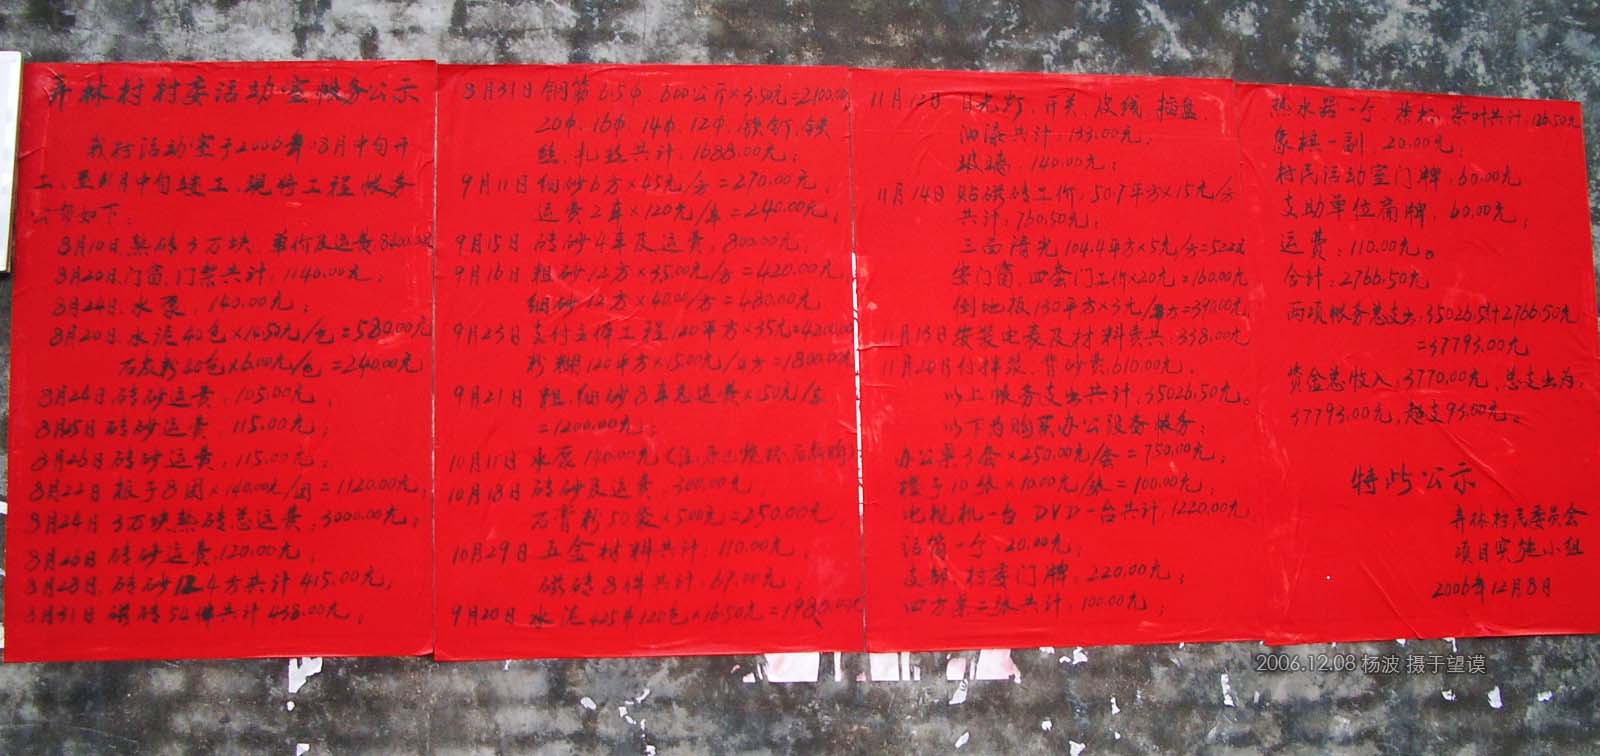 弄林村村委活动室帐务公示
我村活动室于2006年8月中旬开
工、至11月中旬竣工、现将工程帐务
公布如下:
8月10日、热砖3万块、单价及运费8400.00元
8月20日、门窗、门禁共计,1140.00元;
8月24日、水泵,140.00元;
8月20日、水泥40包×14.50元/包=580.00元
石灰粉40包×6.00元/包=240.00元
8月24日、砖砂运费,105.00元,
8月25日砖砂运费,115.00元;
8月26日砖砂运费,115.00元;
8月22日板子8团×140.00元/团=1120.00元;
8月24日3万块热砖总运费,3000.00元;
8月26日砖砂运费,120.00元;
8月28日、砖砂 4方共计415.00元,
8月31日磁砖54件共计438.00元;
8月31日钢筋6.5φ、600公斤×3.50元=2100.00
20φ、16φ、14φ、12φ、铁钉、铁
丝、扎丝共计,1688.00元;
9月11日细砂6方×45元/方=270.00元,
运费2车×120元/车=240.00元,
9月15日砖砂4车及运费,800.00元;
9月16日粗砂12方×35.00元/方=420.00元
细砂12方×40.00/方=480.00元
9月23日支付主体工程120平方×35元=4200.00元
粉糊120平方×15.00元/平方=1800.00元
9月21日粗、细砂8车总运费×50元/车
=1200.00元;
10月11日水泵140.00元(注:原已烧坏、后新购)
10月18日砖砂及运费,300.00元
石膏粉50袋×5.00元=250.00元
10月29日五金材料共计:110.00元;
磁砖8件共计:69.00元;
9月20日水泥425#120包×16.50元=1980.00元
11月12日日光灯、开关、皮线、插盘、
油漆共计:133.00元;
玻璃,140.00元;
11月14日贴磁砖工价,50.7平方×15元/方
共计,760.50元;
三面清光104.4平方×5元/方=522元
安门窗、四套门工价×20元=160.00元
倒地板130平方×3元/平方=390.00元;
11月13日安装电表及材料费共:338.00元
11月20月付拌浆、背砂费,610.00元,
以上帐务支出共计,35026.50元。
以下为购买办公设备帐务:
办公桌3套×250.00元/套=750.00元;
橙子10张×10.00元/张=100.00元;
电视机一台DVD一台共计,1220.00元
话筒一个,20.00元;
支部、村委门牌,220.00元;
四方桌二张共计,100.00元;
热水器一个、茶杯、茶叶共计,126.50元
象棋一副,20.00元;
村民活动室门牌,60.00元
支助单位扁牌,60.00元;
运费:110.00元。
合计:2766.50元
两项帐务总支出:35026.5元+2766.50元
=37793.00元
资金总收入:3770.00元、总支出为:
37793.00元,超支93.00元。
特此公示
弄林村民委员会
项目实施小组
2006年12月8日
2006.12.08 杨波 摄于望谟